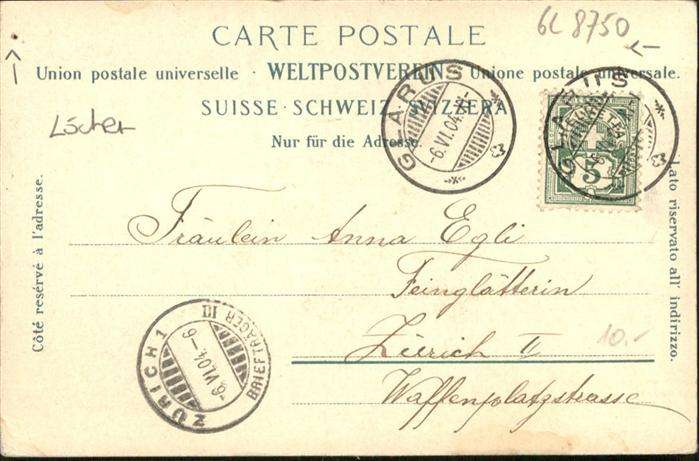 GL 8750
CARTE POSTALE
Union postale universelle · WELTPOSTVEREIN · Unione postale universale.
SUISSE · SCHWEIZ · SVIZZERA
Nur für die Adresse.
Löcher
GLARUS
-6.VI.04.-XI-
GLARUS
5
Côté reservé à l'adresse.
Lato riservato all' indirizzo.
Fräulein Anna Egli
Feinglätterin
Zürich II
Waffenplatzstrasse
10.-
ZÜRICH 1
BRIEFTRÄGER III
-6.VI.04.-6